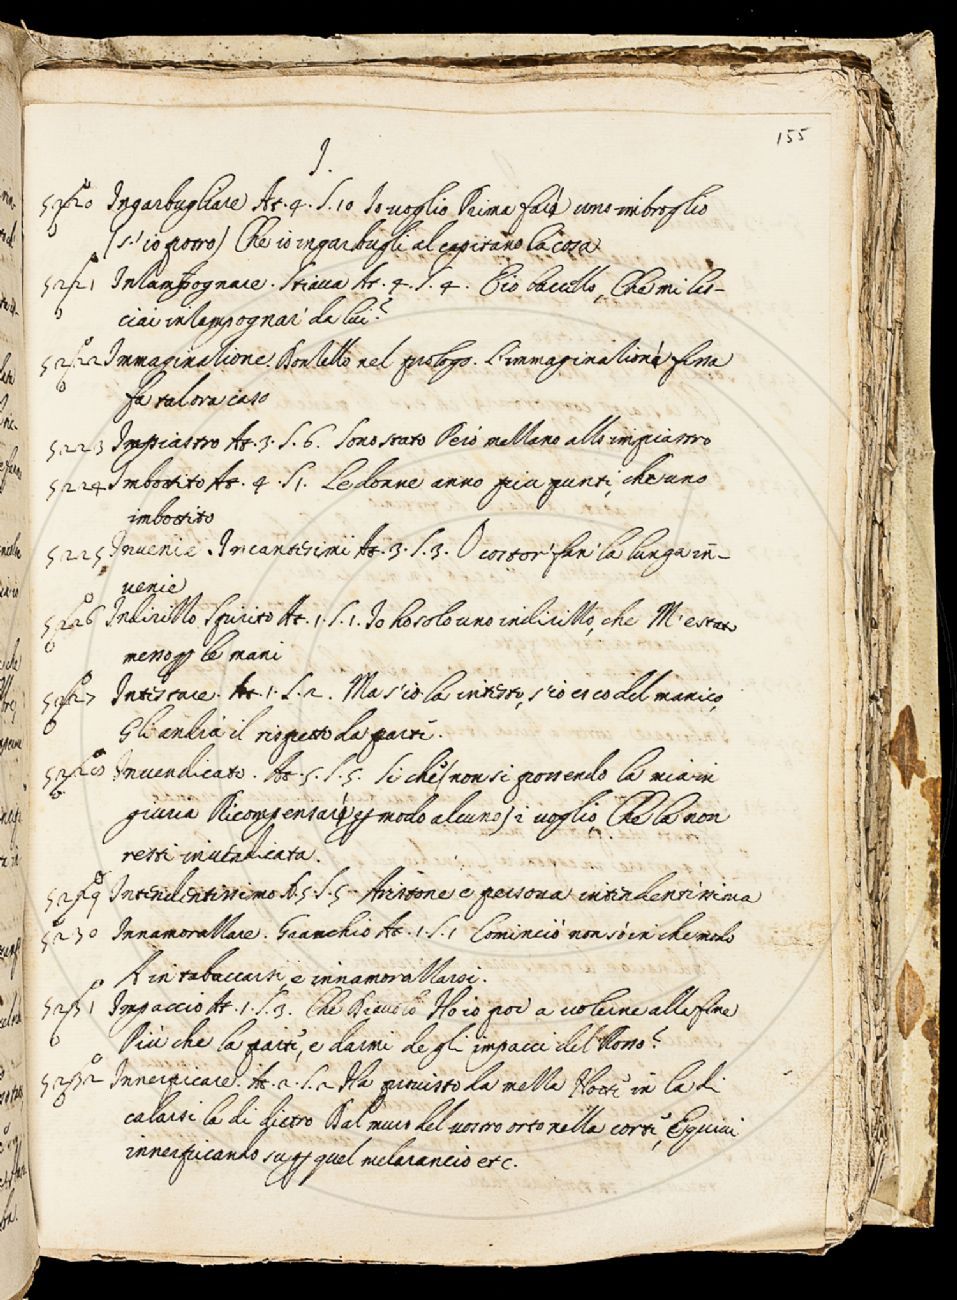 155
I.
5220 Ingarbugliare At. 4. S. 10 Io uoglio Prima farà uno imbroglio
(s' io potro) Che io ingarbugli al capitano la cosa
5221 Inlampognare. Stiaua At. 4. S. 4. Pio baccello, Che mi las-
ciai inlampognar' da lui?
5222 Immaginatione. Donzello nel prologo. L'immaginatione fissa
fa talora caso
5223 Impiastro At. 3. S. 6. Sono stato Però mezzano allo impiastro
5224 Imbottito At. 4 S 1. Le donne anno piu punti, che uno
imbottito
5225 Inuenie. Incantesimi At. 3. S. 3. O costor' fan' la lunga in-
uenie
5226 Indirizzo Spirito At. 1. S. 1. Io ho solo uno indirizzo, che M'è stato
messo p le mani
5227 Intestare. At. 1. S. 2. Ma s'io la intesto, s'io esco del manico,
Gli andrà il rispetto da parte.
5228 Inuendicato. At. 5. S. 5. Si che (non si possendo la mia in
giuria Ricompensare p modo alcuno) i uoglio, Che la non
resti inuendicata.
5229 Intendentissimo A. 5. S. 5 - Aristone e persona intendentissima
5230 Innamorazzare. Granchio At. 1. S. 1 Cominciò non sò in che modo
A intabaccarsi, e innamorazzarsi.
5231 Impaccio At. 1. S. 3. Che Diauolo Ho io poi a uolerne alla fine
Più che la parte, e darmi degli impacci del Rosso?
5232 Innerpicare. At. 2. S. 2 Ha prouisto da mezza Notte in la di
calarsi la di dietro Dal muro del uostro orto nella corte, E quiui
innerpicando su p quel melarancio etc.